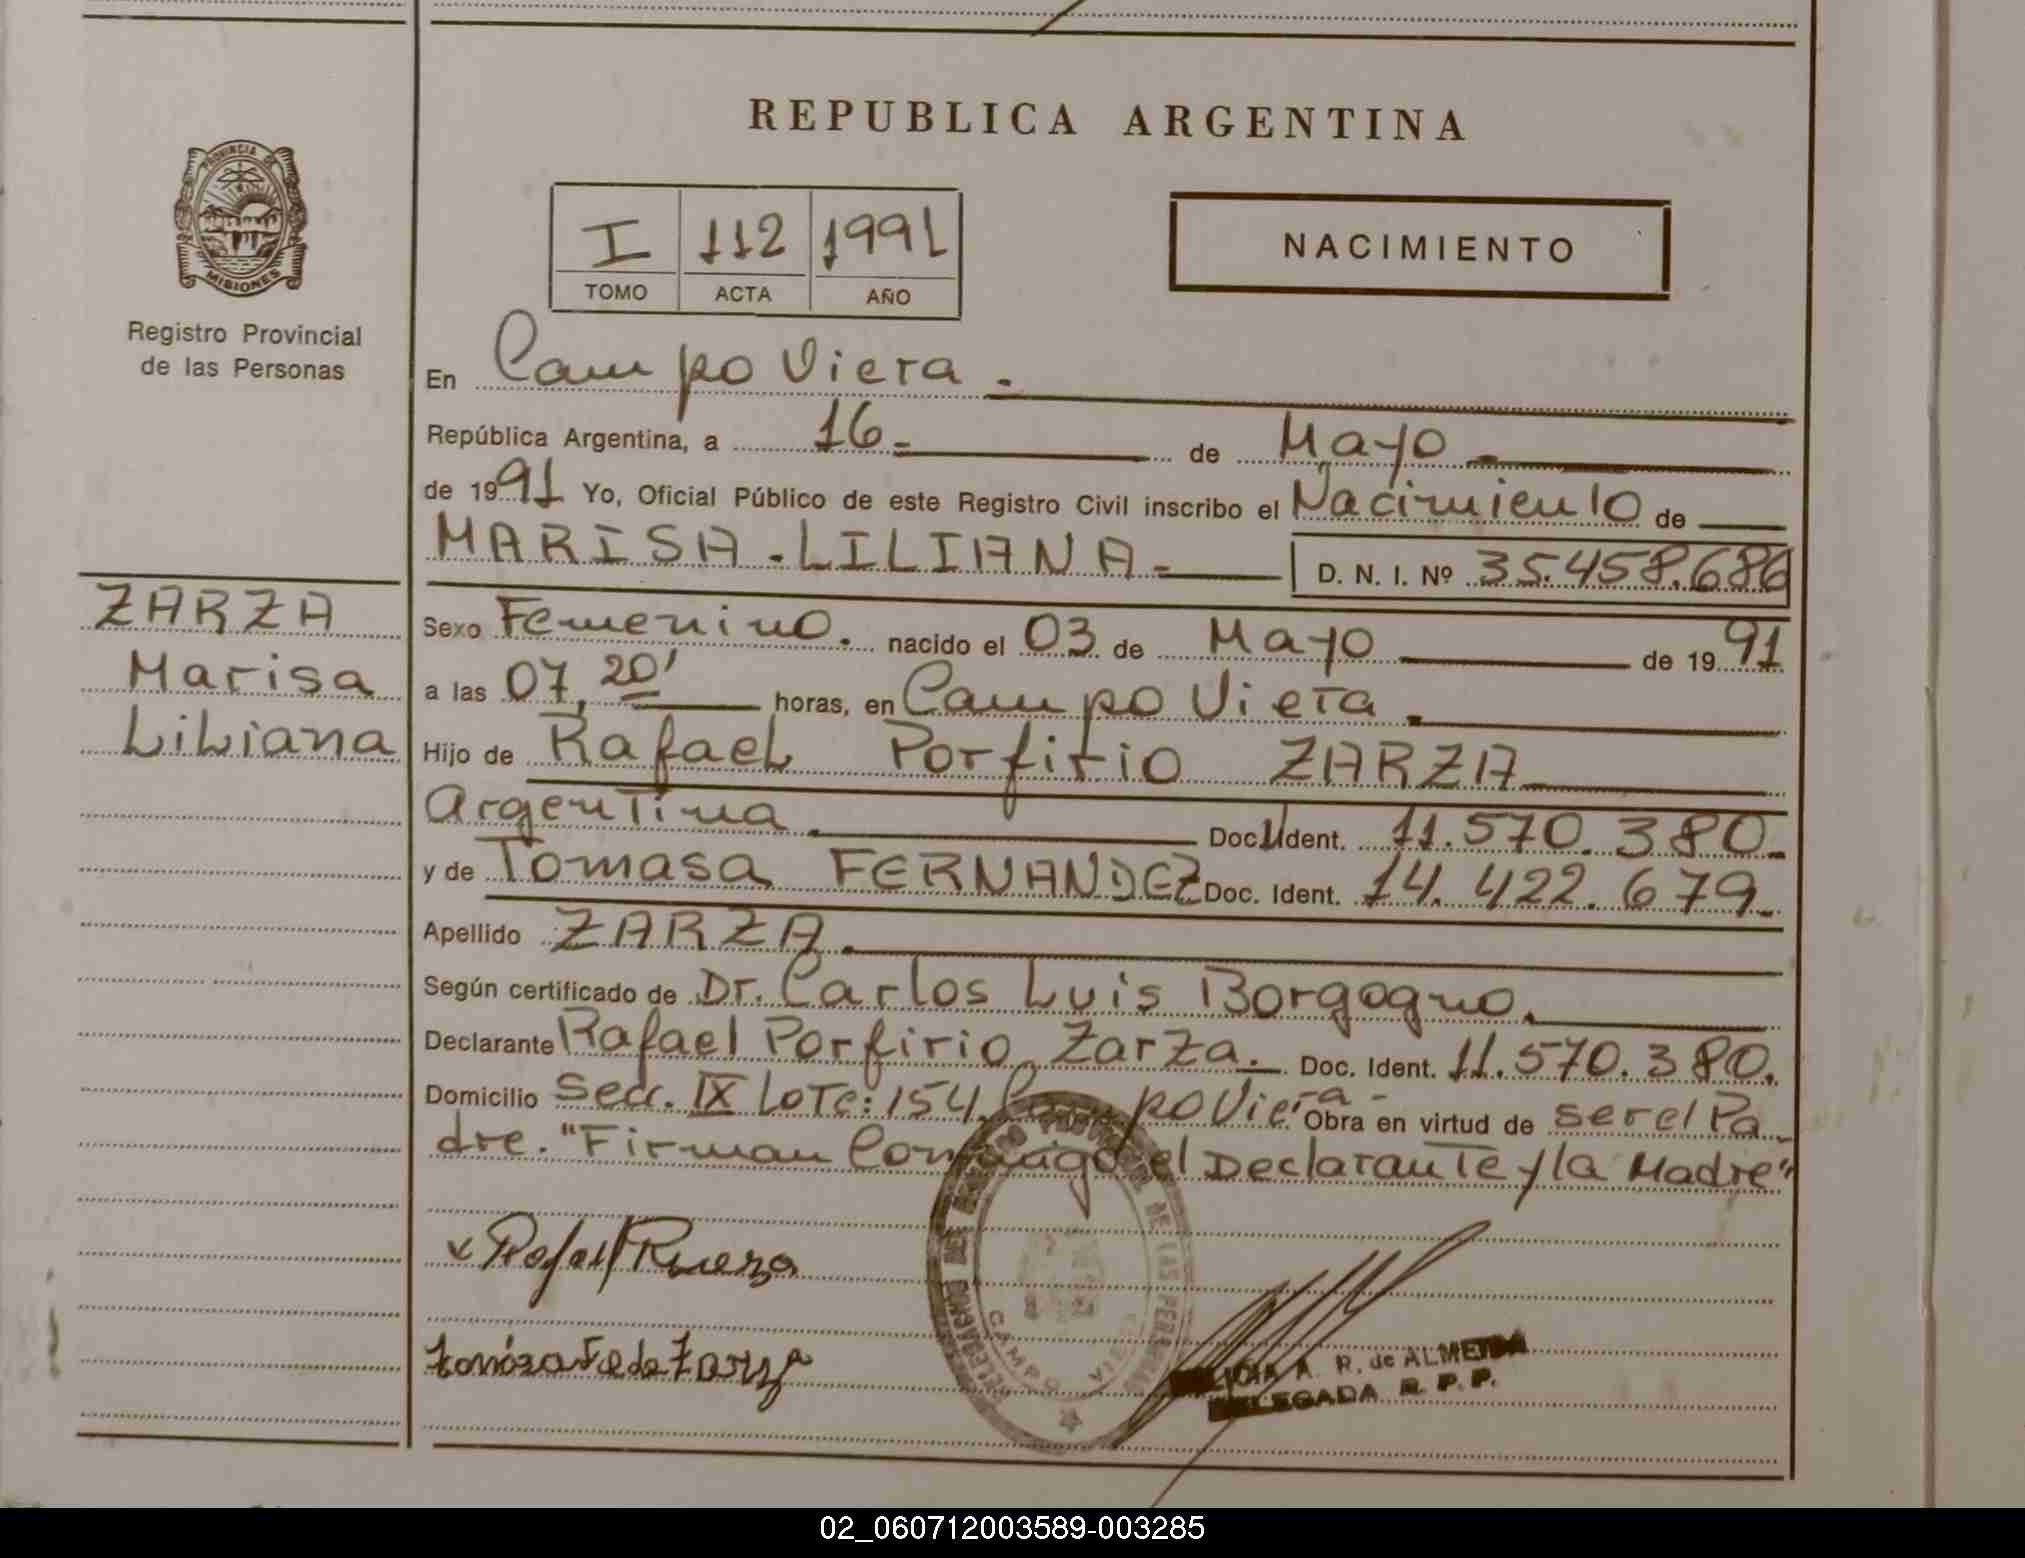 REPUBLICA ARGENTINA
PROVINCIA DE
MISIONES
Registro Provincial
de las Personas
I 112 1991
TOMO ACTA AÑO
NACIMIENTO
En Campo Viera.
República Argentina, a 16 de Mayo
de 1991 Yo, Oficial Público de este Registro Civil inscribo el Nacimiento de
MARISA-LILIANA- D. N. I. Nº 35.458.686
ZARZA
Marisa
Liliana
Sexo Femenino. nacido el 03 de Mayo de 1991
a las 07,20' horas, en Campo Viera.
Hijo de Rafael Porfirio ZARZA
Argentina Doc. Ident. 11.570.380.
y de Tomasa FERNANDEZ Doc. Ident. 14.422.679.
Apellido ZARZA.
Según certificado de Dr. Carlos Luis Borgogno.
Declarante Rafael Porfirio Zarza. Doc. Ident. 11.570.380.
Domicilio Secc. IX Lote: 154. Campo Viera- Obra en virtud de ser el Pa-
dre. "Firman Conmigo el Declarante y la Madre"
DE LAS PERSONAS
CAMPO VIERA
Tomasa F de Zarza
A. R. de ALMEIDA
DELEGADA R. P. P.
02_060712003589-003285